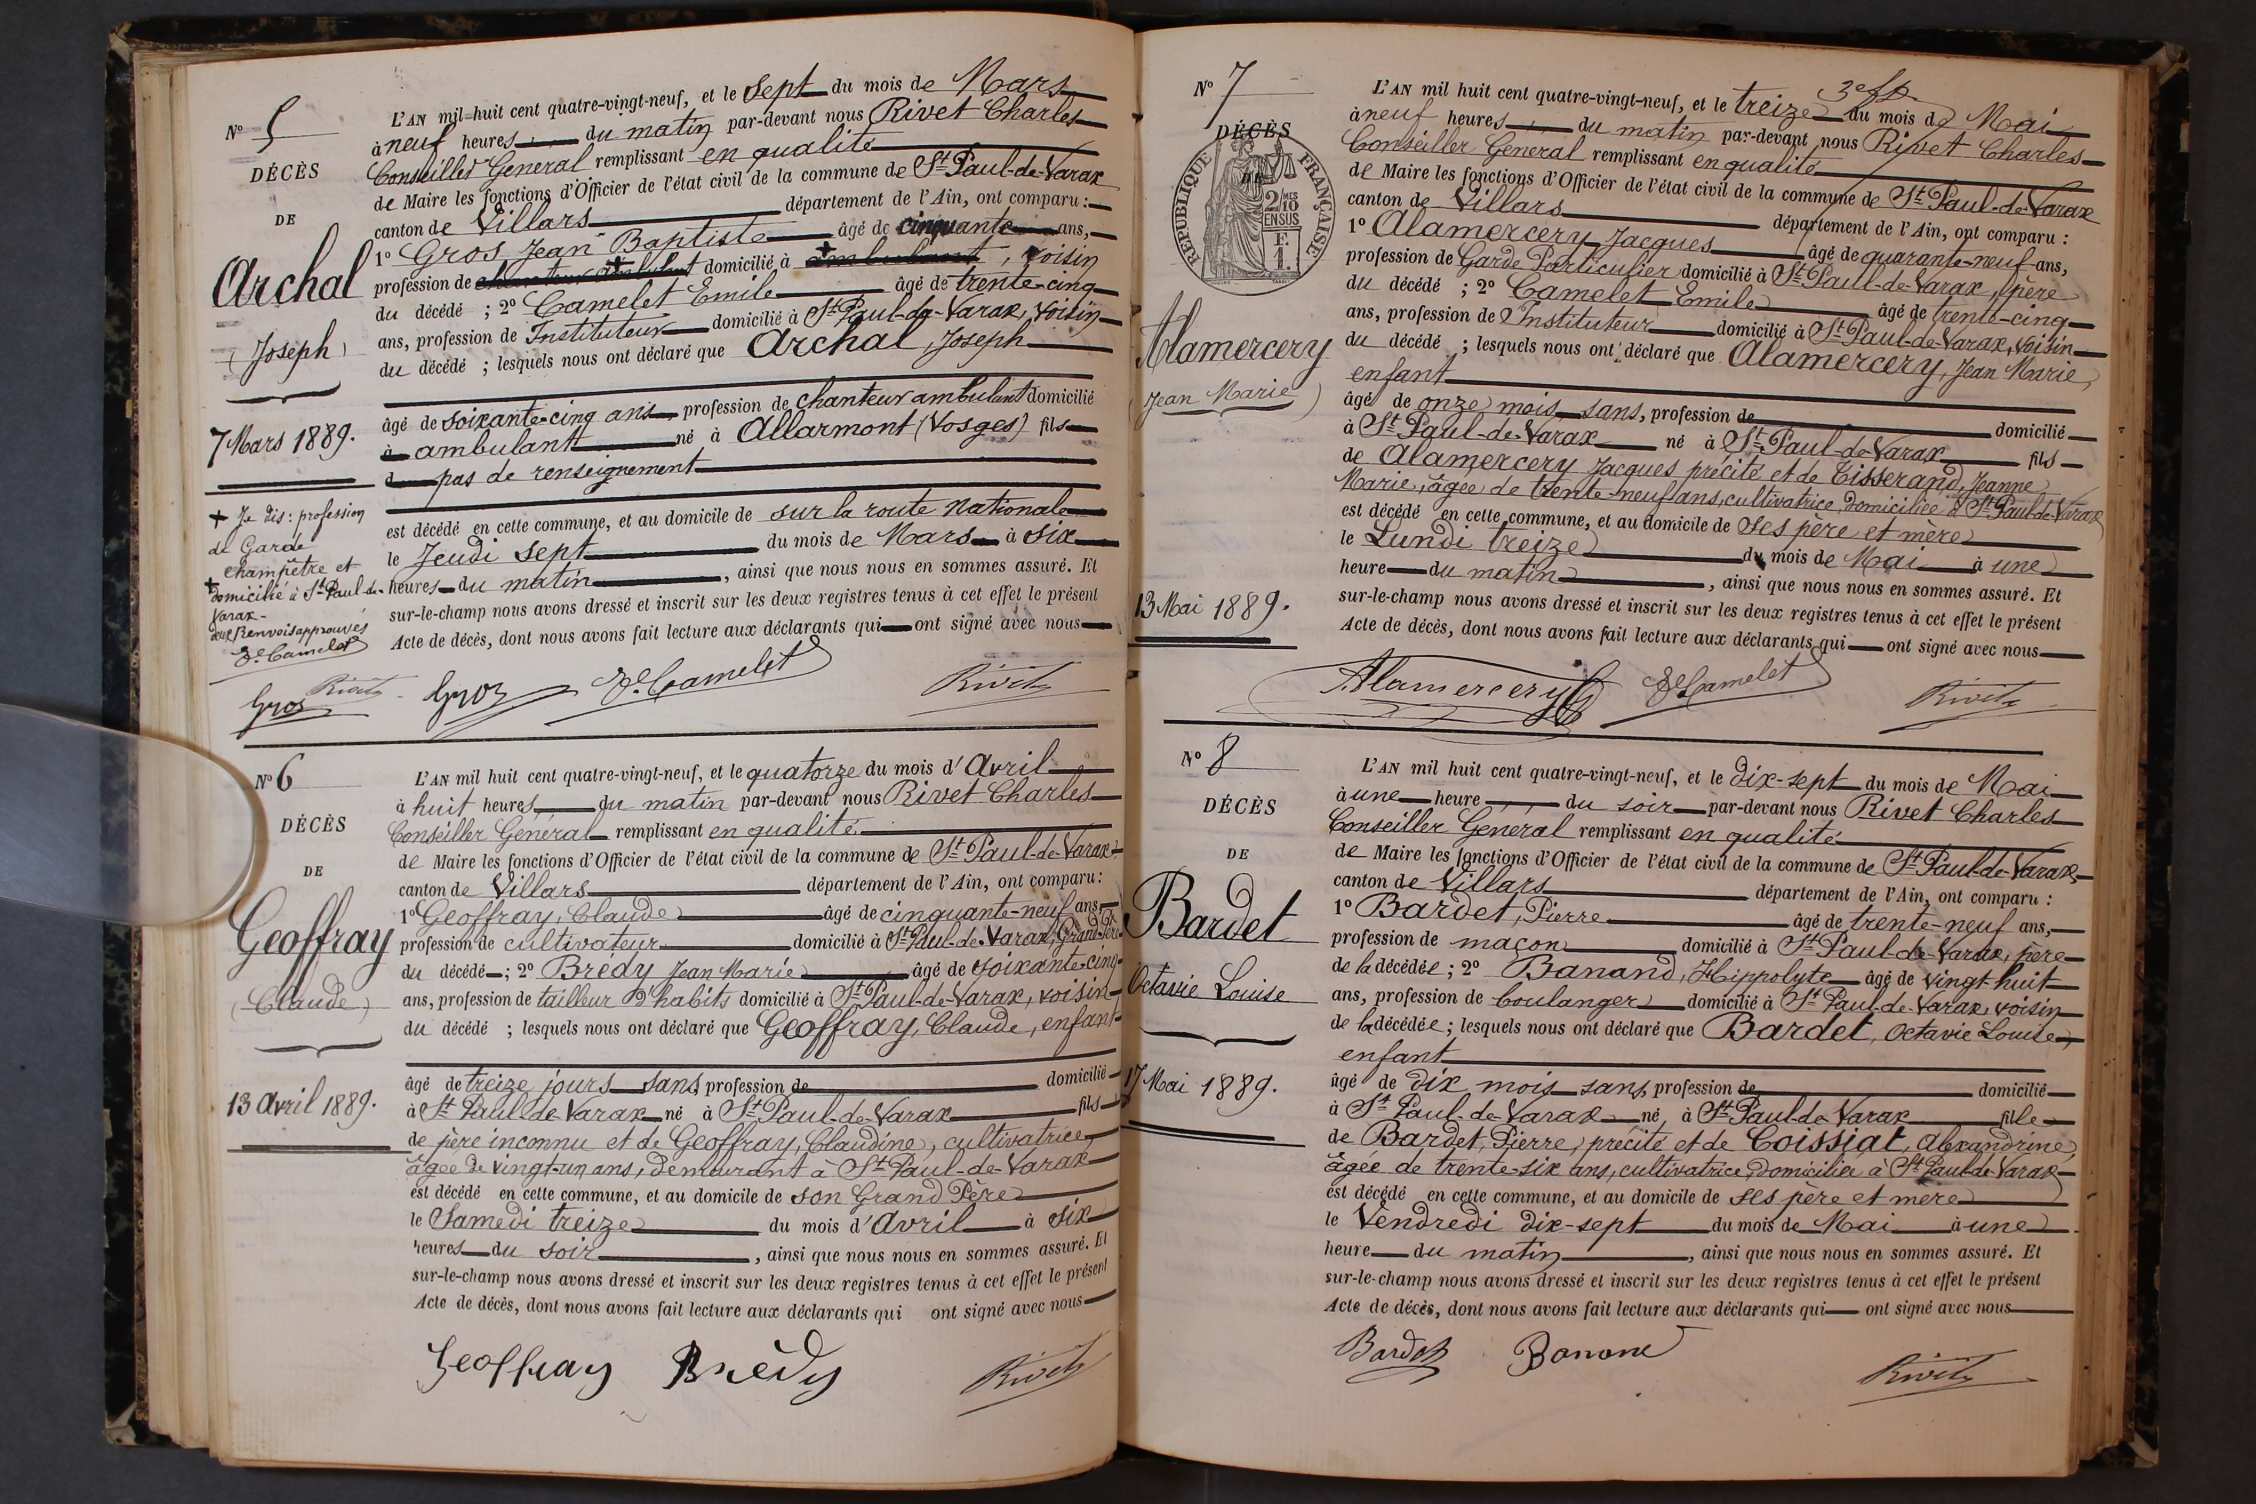 N° 5
DÉCÈS
DE
Archal
(Joseph)
7 Mars 1889.
+ Je dis: profession
de Garde
champêtre et
+ domicilié à St Paul-de-
Varax-
deux Renvois approuvés
E. Camelet
Gros Rivet
L'AN mil huit cent quatre-vingt-neuf, et le sept du mois de Mars
à neuf heures du matin par-devant nous Rivet Charles
Conseiller Général remplissant en qualité
de Maire les fonctions d'Officier de l'état civil de la commune de St Paul-de-Varax
canton de Villars département de l'Ain, ont comparu :
1° Gros, Jean-Baptiste âgé de cinquante ans,
profession de chanteur ambulant + domicilié à + ambulant, voisin
du décédé ; 2° Camelet Emile âgé de trente-cinq
ans, profession de Instituteur domicilié à St Paul-de-Varax, voisin
du décédé ; lesquels nous ont déclaré que Archal, Joseph
âgé de soixante-cinq ans, profession de chanteur ambulant domicilié
à ambulant né à Allarmont (Vosges) fils
d pas de renseignement
est décédé en cette commune, et au domicile de sur la route Nationale
le Jeudi sept du mois de Mars à six
heures du matin, ainsi que nous nous en sommes assuré. Et
sur-le-champ nous avons dressé et inscrit sur les deux registres tenus à cet effet le présent
Acte de décès, dont nous avons fait lecture aux déclarants qui ont signé avec nous
Gros E. Camelet Rivet
N° 6
DÉCÈS
DE
Geoffray
(Claude)
13 Avril 1889.
L'AN mil huit cent quatre-vingt-neuf, et le quatorze du mois d'Avril
à huit heures du matin par-devant nous Rivet Charles
Conseiller Général remplissant en qualité
de Maire les fonctions d'Officier de l'état civil de la commune de St Paul-de-Varax
canton de Villars département de l'Ain, ont comparu :
1° Geoffray, Claude âgé de cinquante-neuf ans,
profession de cultivateur domicilié à St Paul-de-Varax, Grand-Père
du décédé ; 2° Brédy Jean Marie âgé de soixante-cinq
ans, profession de tailleur d'habits domicilié à St Paul-de-Varax, voisin
du décédé ; lesquels nous ont déclaré que Geoffray, Claude, enfant
âgé de treize jours sans profession de domicilié
à St Paul-de-Varax né à St Paul-de-Varax fils
de père inconnu et de Geoffray, Claudine, cultivatrice,
âgée de vingt-un ans, demeurant à St Paul-de-Varax
est décédé en cette commune, et au domicile de son Grand Père
le Samedi treize du mois d'Avril à six
heures du soir, ainsi que nous nous en sommes assuré. Et
sur-le-champ nous avons dressé et inscrit sur les deux registres tenus à cet effet le présent
Acte de décès, dont nous avons fait lecture aux déclarants qui ont signé avec nous
Geoffray Brédy Rivet
N° 7
DÉCÈS
DE
RÉPUBLIQUE FRANÇAISE
2/10 MES
EN SUS
Alamercery
(Jean Marie)
13 Mai 1889.
L'AN mil huit cent quatre-vingt-neuf, et le treize du mois de Mai
à neuf heures du matin par-devant nous Rivet Charles
Conseiller Général remplissant en qualité
de Maire les fonctions d'Officier de l'état civil de la commune de St Paul-de-Varax
canton de Villars département de l'Ain, ont comparu :
1° Alamercery Jacques âgé de quarante-neuf ans,
profession de Garde Particulier domicilié à St Paul-de-Varax, père
du décédé ; 2° Camelet Emile âgé de trente-cinq
ans, profession de Instituteur domicilié à St Paul-de-Varax, voisin
du décédé ; lesquels nous ont déclaré que Alamercery, Jean Marie,
enfant
âgé de onze mois sans, profession de domicilié
à St Paul-de-Varax né à St Paul-de-Varax fils
de Alamercery Jacques précité et de Tisserand, Jeanne
Marie, âgée de trente-neuf ans, cultivatrice, domiciliée à St Paul-de-Varax
est décédé en cette commune, et au domicile de ses père et mère
le Lundi treize du mois de Mai à une
heure du matin, ainsi que nous nous en sommes assuré. Et
sur-le-champ nous avons dressé et inscrit sur les deux registres tenus à cet effet le présent
Acte de décès, dont nous avons fait lecture aux déclarants qui ont signé avec nous
Alamercery E. Camelet Rivet
N° 8
DÉCÈS
DE
Bardet
Octavie Louise
17 Mai 1889.
L'AN mil huit cent quatre-vingt-neuf, et le dix-sept du mois de Mai
à une heure du soir par-devant nous Rivet Charles
Conseiller Général remplissant en qualité
de Maire les fonctions d'Officier de l'état civil de la commune de St Paul-de-Varax,
canton de Villars département de l'Ain, ont comparu :
1° Bardet, Pierre âgé de trente-neuf ans,
profession de maçon domicilié à St Paul-de-Varax, père
de la décédée ; 2° Banand, Hippolyte âgé de vingt-huit
ans, profession de boulanger domicilié à St Paul-de-Varax, voisin
de la décédée ; lesquels nous ont déclaré que Bardet, Octavie Louise,
enfant
âgé de dix mois sans, profession de domicilié
à St Paul-de-Varax né, à St Paul-de-Varax fille
de Bardet, Pierre, précité et de Coissiat, Alexandrine,
âgée de trente-six ans, cultivatrice, domiciliée à St Paul-de-Varax
est décédé en cette commune, et au domicile de ses père et mère
le Vendredi dix-sept du mois de Mai à une
heure du matin, ainsi que nous nous en sommes assuré. Et
sur-le-champ nous avons dressé et inscrit sur les deux registres tenus à cet effet le présent
Acte de décès, dont nous avons fait lecture aux déclarants qui ont signé avec nous
Bardet Banand Rivet